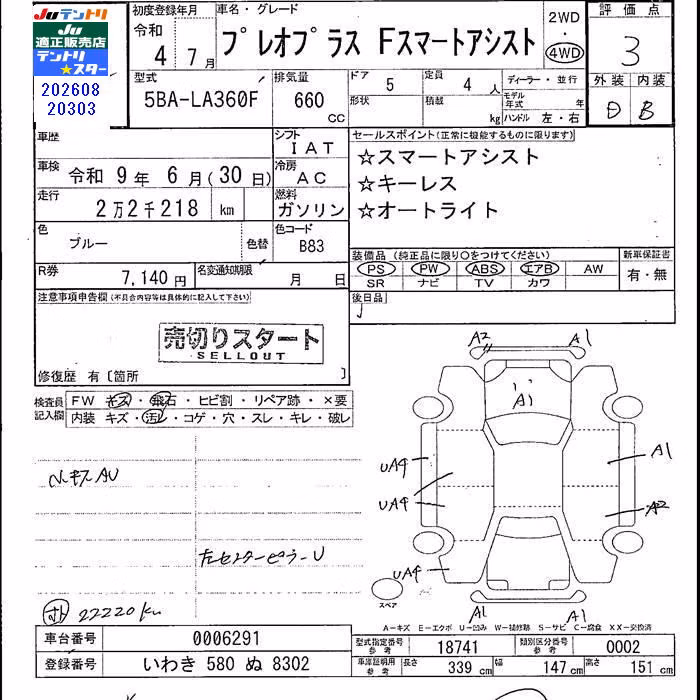 JUテントリ
JU
適正販売店
テントリ
★スター
202608
20303
初度登録年月 車名・グレード 評価点
令和 4 7月 プレオプラス Fスマートアシスト 2WD・4WD 3
型式 排気量 ドア 5 定員 4人 ディーラー・並行 外装 内装
5BA-LA360F 660 CC 形状 積載 kg モデル年式 年 ハンドル 左・右 D B
車歴 シフト IAT セールスポイント(正常に機能するものに限ります)
車検 令和 9年 6月(30日) 冷房 AC ☆スマートアシスト
☆キーレス
走行 2万2千218 km 燃料 ガソリン ☆オートライト
色 ブルー 色替 色コード B83
装備品(純正品に限り○をつけてください) 新車保証書
PS PW ABS エアB AW 有・無
SR ナビ TV カワ
R券 7,140円 名変通知期限 月 日
注意事項申告欄(不具合内容等は具体的に記入して下さい) 後日品
売切りスタート
SELLOUT
修復歴 有〔箇所 〕
検査員記入欄 FW キズ・飛石・ヒビ割・リペア跡・×要
内装 キズ・汚レ・コゲ・穴・スレ・キレ・破レ
A2 A1
A1
UA4 A1
UA4 A2
UA4
A1 A1
小キズ AU
左センターピラーU
22220km
スペア
A－キズ E－エクボ U－凹み W－補修跡 S－サビ C－腐食 XX－交換済
車台番号 0006291 型式指定番号 参考 18741 類別区分番号 参考 0002
登録番号 いわき 580 ぬ 8302 車庫証明用 参考 長さ 339cm 幅 147cm 高さ 151cm